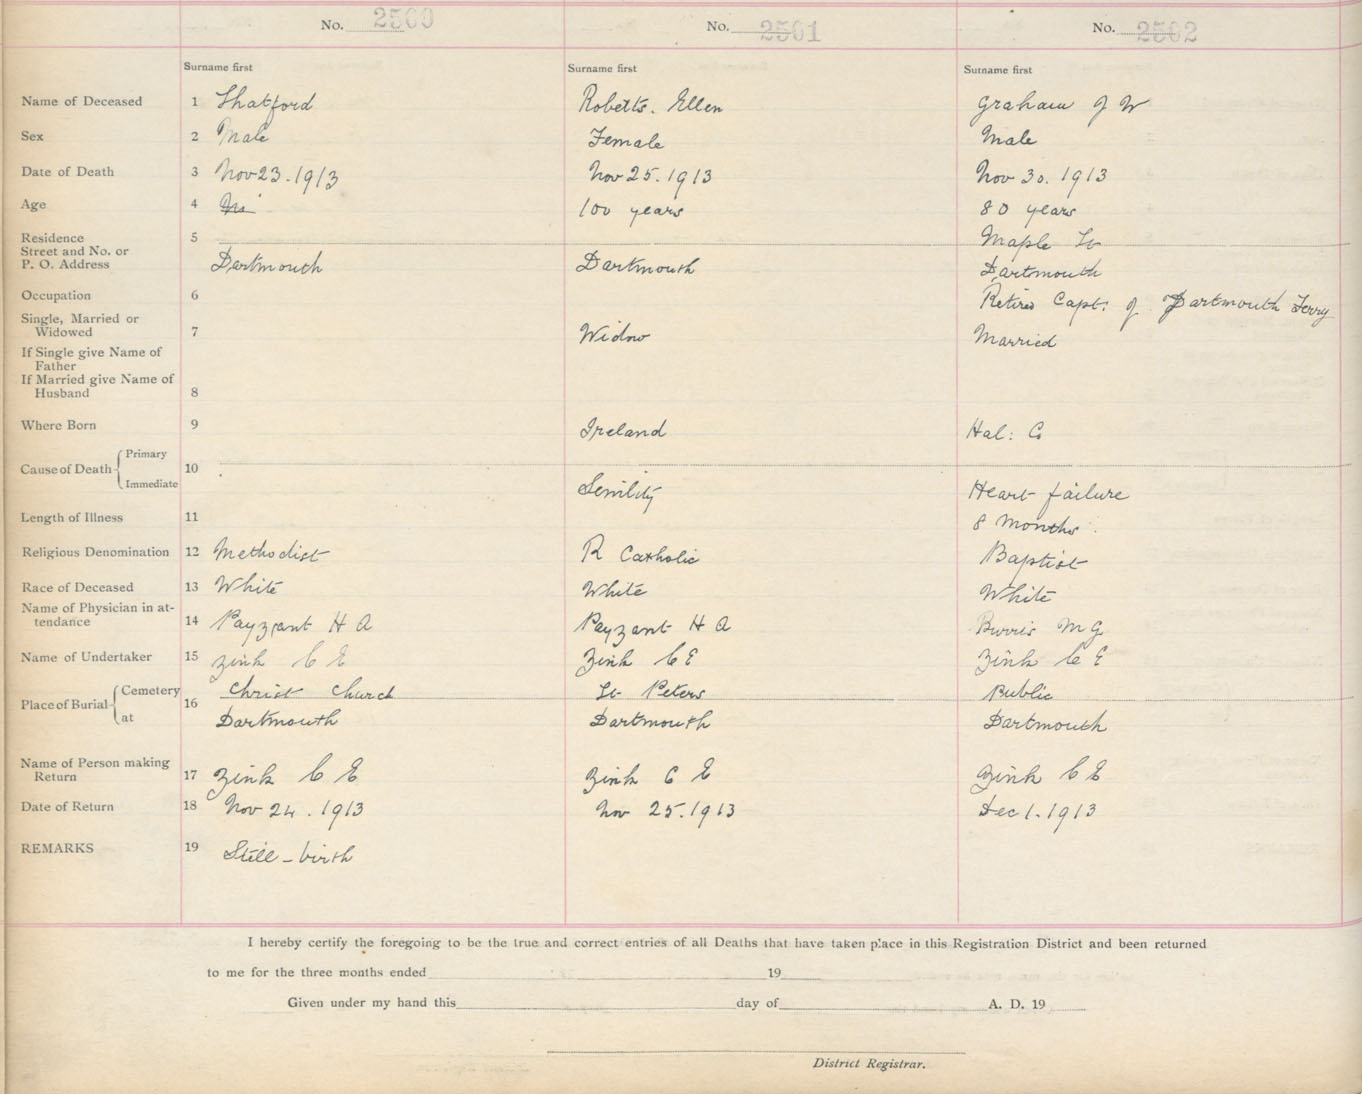 No. 2500 No. 2501 No. 2502
Surname first Surname first Surname first
Name of Deceased 1 Shatford Roberts. Ellen Graham J W
Sex 2 Male Female Male
Date of Death 3 Nov 23. 1913 Nov 25. 1913 Nov 30. 1913
Age 4 100 years 80 years
Residence 5 Maple St
Street and No. or
P. O. Address Dartmouth Dartmouth Dartmouth
Occupation 6 Retired Capt. of Dartmouth Ferry
Single, Married or
Widowed 7 Widow Married
If Single give Name of
Father
If Married give Name of
Husband 8
Where Born 9 Ireland Hal: Co
Cause of Death Primary 10
Immediate Senility Heart failure
Length of Illness 11 8 months
Religious Denomination 12 Methodist R Catholic Baptist
Race of Deceased 13 White White White
Name of Physician in at-
tendance 14 Payzant H A Payzant H A Burris M G
Name of Undertaker 15 Zink C E Zink C E Zink C E
Place of Burial Cemetery 16 Christ Church St Peters Public
at Dartmouth Dartmouth Dartmouth
Name of Person making
Return 17 Zink C E Zink C E Zink C E
Date of Return 18 Nov 24. 1913 Nov 25. 1913 Dec 1. 1913
REMARKS 19 Still-birth
I hereby certify the foregoing to be the true and correct entries of all Deaths that have taken place in this Registration District and been returned
to me for the three months ended 19
Given under my hand this day of A. D. 19
District Registrar.